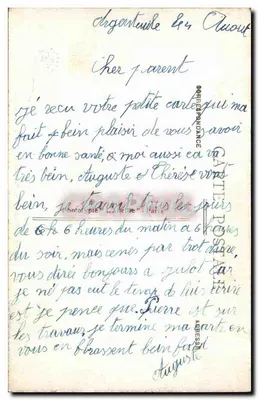 Argenteuil le 4 Aout
Cher parent
j'é recu votre petite carte qui ma
fait bein plaisir de vous savoir
en bonne santé, moi aussi ca va
très bein, Auguste et Thérèse vont
bein, je travail tous les jours
de 6 heures du matin a 6 heures
du soir, mais cenés pas trot dure,
vous direé bonjours a car
je né pas eut le temp de luis écrire
est je pence que Pierre est sur
les travaux, je termine ma carte en
vous en Brassent bein fort
Auguste
CORRESPONDANCE
CARTE POSTALE
ADRESSE